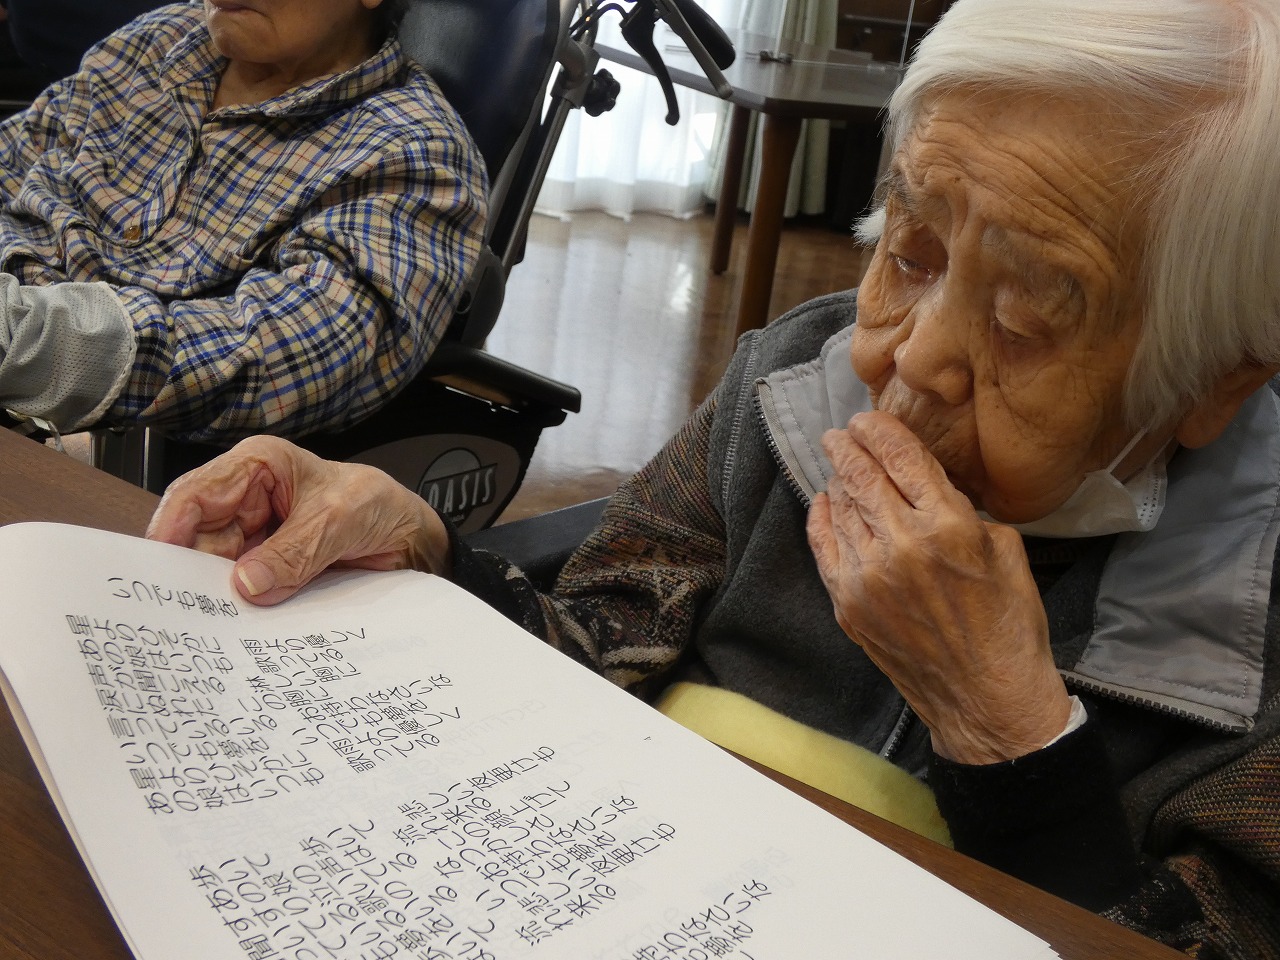 いつでも夢を
星よりひそかに 雨より優しく
あの娘はいつも 歌ってる
声が聞こえる 淋しい胸に
涙に濡れた この胸に
言っているいる お持ちなさいな
いつでも夢を いつでも夢を
星よりひそかに 雨より優しく
あの娘はいつも 歌ってる
歩いて歩いて 悲しい夜更けも
あの娘の声は 流れ来る
すすり泣いてる この顔上げて
聞いてる歌の なつかしさ
お持ちなさいな
いつでも夢を
悲しい夜更けも
流れ来る
お持ちなさいな
OASIS